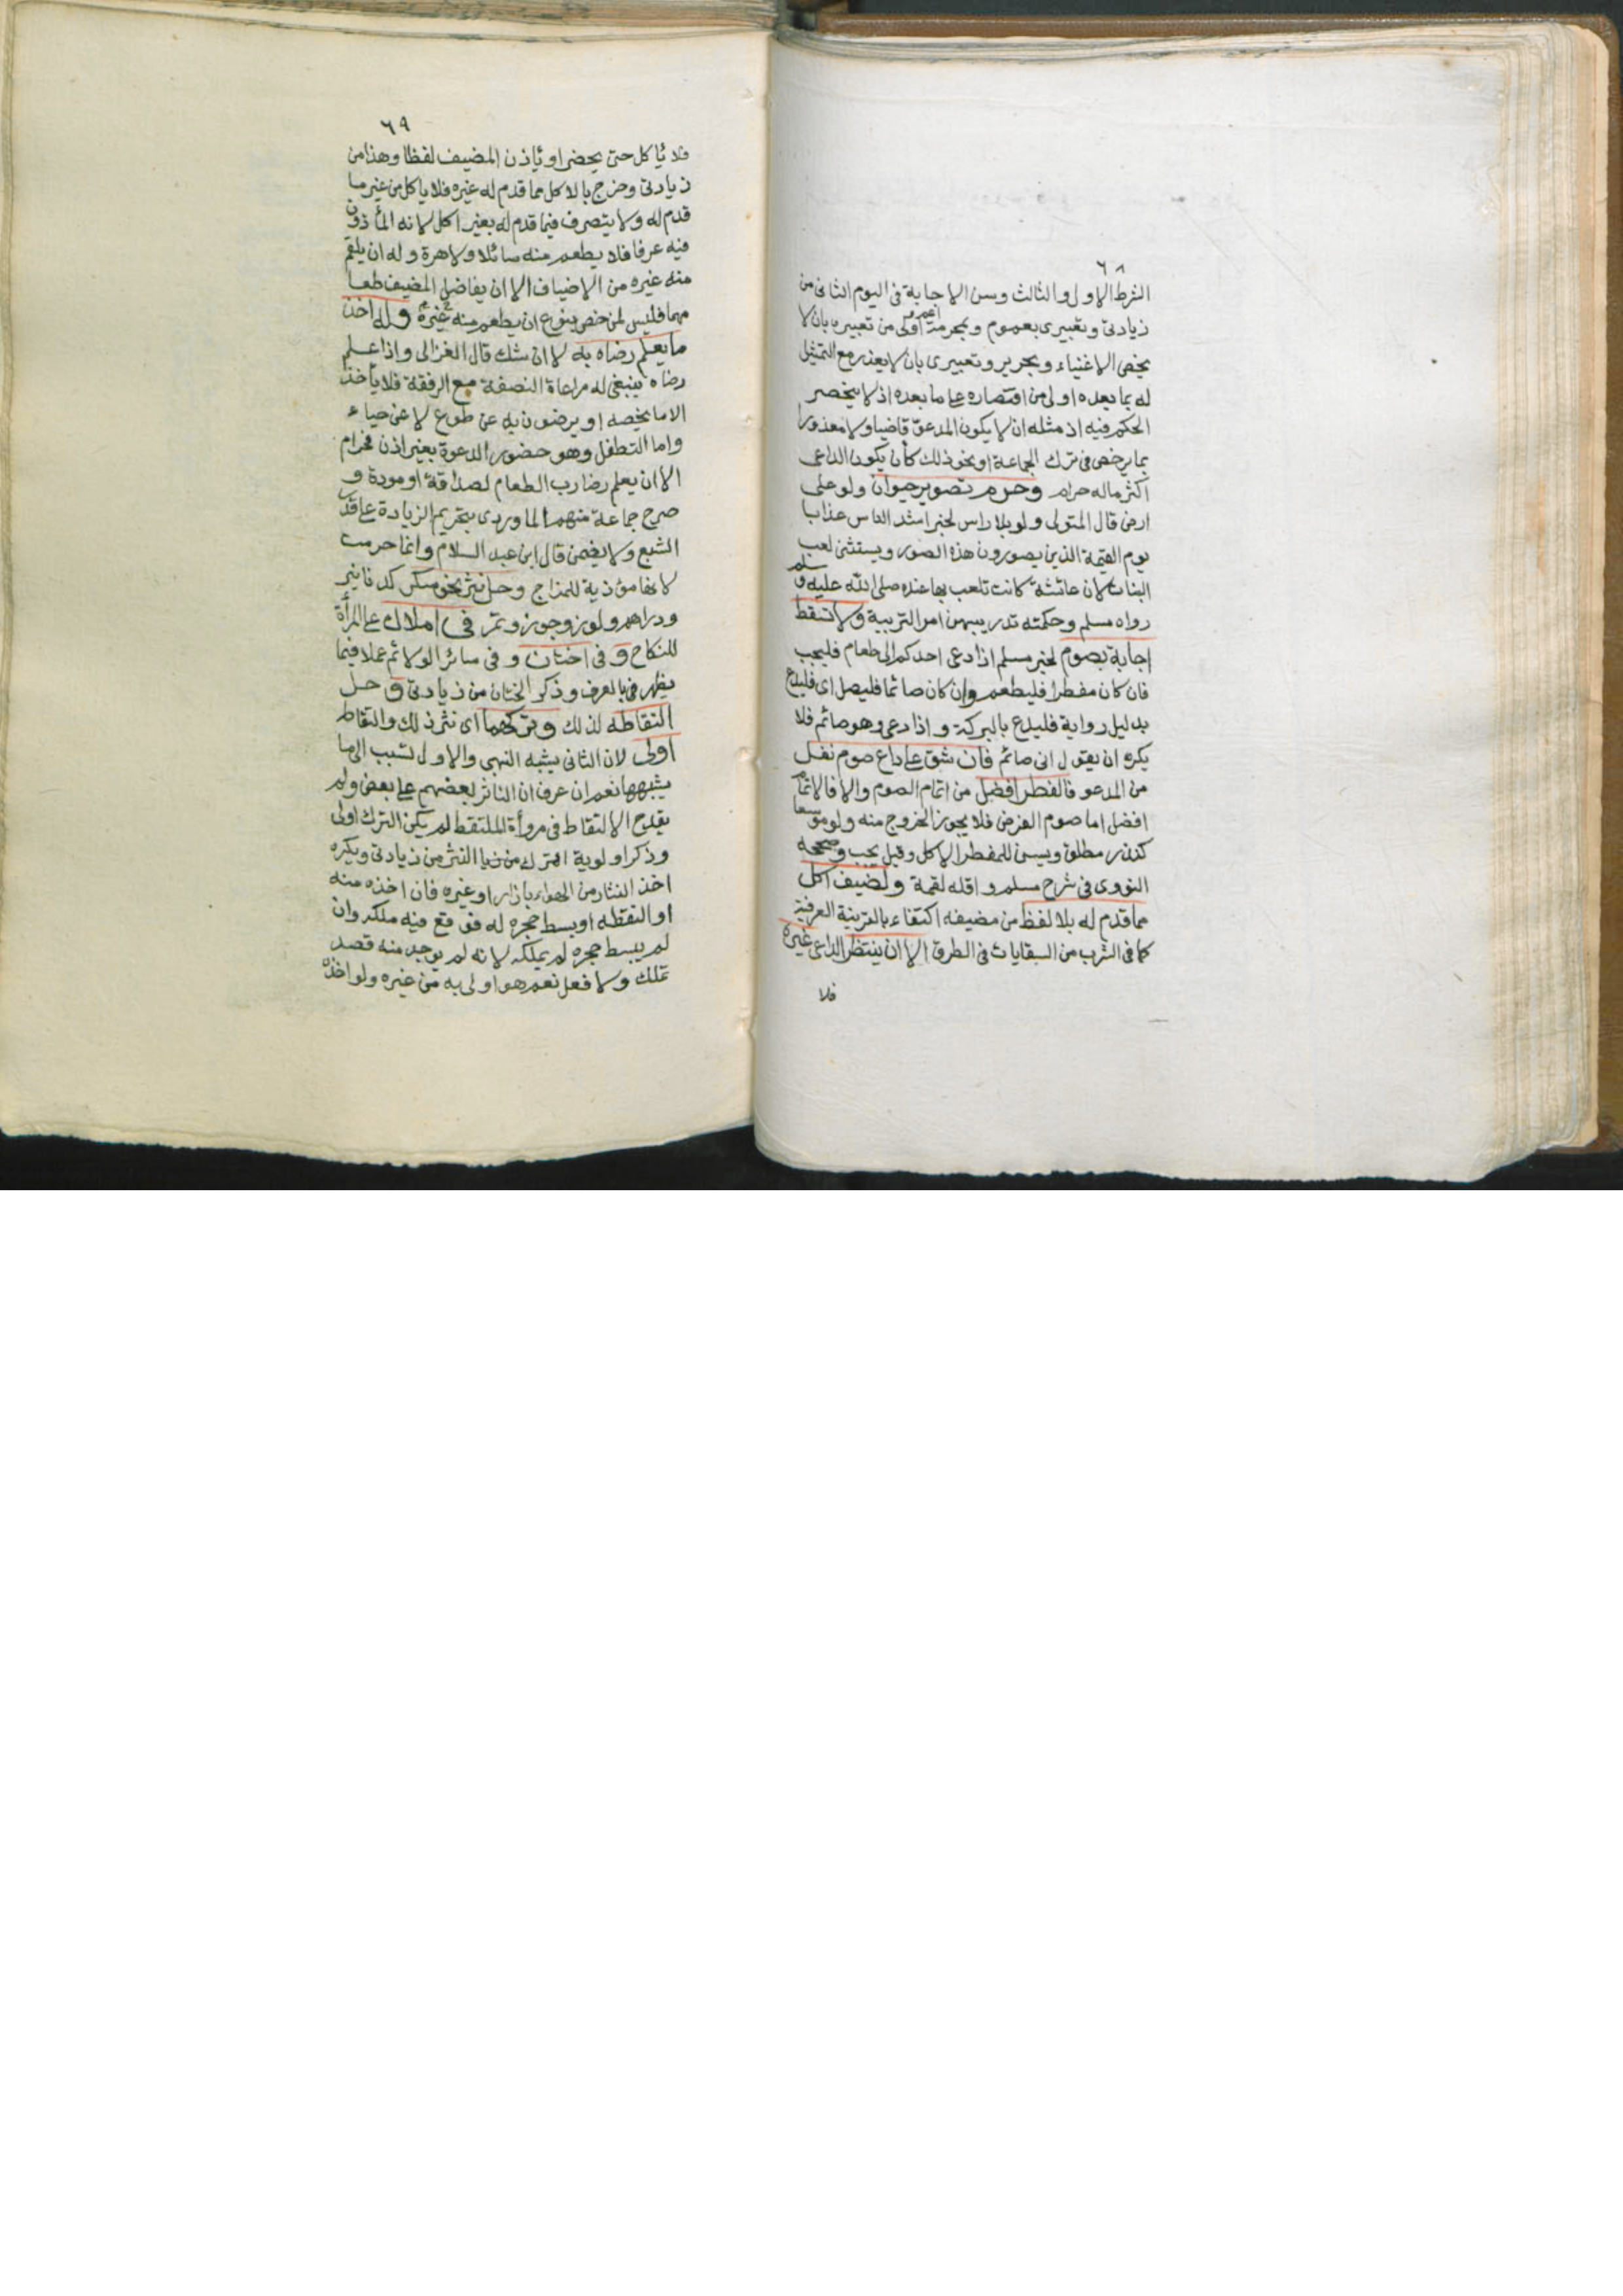 ٦٨
الشرط الاول والثالث وسن الاجابة فى اليوم الثانى من
زيادتى وتعبيرى بعموم وبمحرمة اعم و اولى من تعبيره بان لا
يخص الاغنياء وبحرير وتعبيرى بان لا يعذر مع التمثيل
له بما بعده اولى من اقتصاره على ما بعده اذ لا ينحصر
الحكم فيه اذ مثله ان لا يكون المدعو قاضيا ولا معذورا
بما يرخص فى ترك الجماعة او نحو ذلك كأن يكون الداعى
اكثر ماله حرام وحرم تصوير حيوان ولو على
ارض قال المتولى ولو بلا راس لخبر اشد الناس عذابا
يوم القيمة الذين يصورون هذه الصور ويستثنى لعب
البنات لان عائشة كانت تلعب بها عنده صلى الله عليه وسلم
رواه مسلم وحكمته تدريبهن امر التربية ولا تسقط
اجابة بصوم لخبر مسلم اذا دعى احدكم الى طعام فليجب
فان كان مفطرا فليطعم وان كان صائما فليصل اى فليدع
بدليل رواية فليدع بالبركة واذا دعى وهو صائم فلا
يكره ان يقول انى صائم فان شق على داع صوم نفل
من المدعو فالفطر افضل من اتمام الصوم والا فالاتمام
افضل اما صوم الفرض فلا يجوز الخروج منه ولو موسعا
كنذر مطلق ويسن للمفطر الاكل وقيل يجب وصححه
النووى فى شرح مسلم واقله لقمة ولضيف اكل
مما قدم له بلا لفظ من مضيفه اكتفاء بالقرينة العرفية
كما فى الشرب من السقايات فى الطرق الا ان ينتظر الداعى غيره
فلا
٦٩
فلا يأكل حتى يحضر او يأذن المضيف لفظا وهذا من
زيادتى وخرج بالاكل مما قدم له غيره فلا ياكل من غير ما
قدم له ولا يتصرف فيما قدم له بغير اكل لانه المأذون
فيه عرفا فلا يطعم منه سائلا ولا هرة وله ان يلقم
منه غيره من الاضياف الا ان يفاضل المضيف طعا
مهما فليس لمن خص بنوع ان يطعم منه غيره وله اخذ
ما يعلم رضاه به لا ان شك قال الغزالى واذا علم
رضاه ينبغى له مراعاة النصفة مع الرفقة فلا يأخذ
الا ما يخصه او يرضون به عن طوع لا عن حياء
واما التطفل وهو حضور الدعوة بغير اذن فحرام
الا ان يعلم رضا رب الطعام لصداقة او مودة و
صرح جماعة منهم الماوردى بتحريم الزيادة على قدر
الشبع ولا يضمن قال ابن عبد السلام وانما حرمت
لانها مؤذية للمزاج وحل نثر نحو سكر كدنانير
ودراهم ولوز وجوز وتمر فى املاك على المرأة
للنكاح و فى اختان وفى سائر الولائم عملا فيما
يظهر فى بالعرف وذكر الختان من زيادتى و حل
التقاطه لذلك وتركهما اى نثر ذلك والتقاط
اولى لان الثانى يشبه النهبى والاول تسبب الى ما
يشبهها نعم ان عرف ان الناثر لا يؤثر بعضهم على بعض ولم
يقدح الالتقاط فى مروأة الملتقط لم يكن الترك اولى
وذكر اولوية الترك من زيا النثر من زيادتى ويكره
اخذ النثار من الهواء بازار او غيره فان اخذه منه
او التقطه او بسط حجره له فوقع فيه ملكه وان
لم يبسط حجره لم يملكه لانه لم يوجد منه قصد
تملك ولا فعل نعم هو اولى به من غيره ولو اخذه